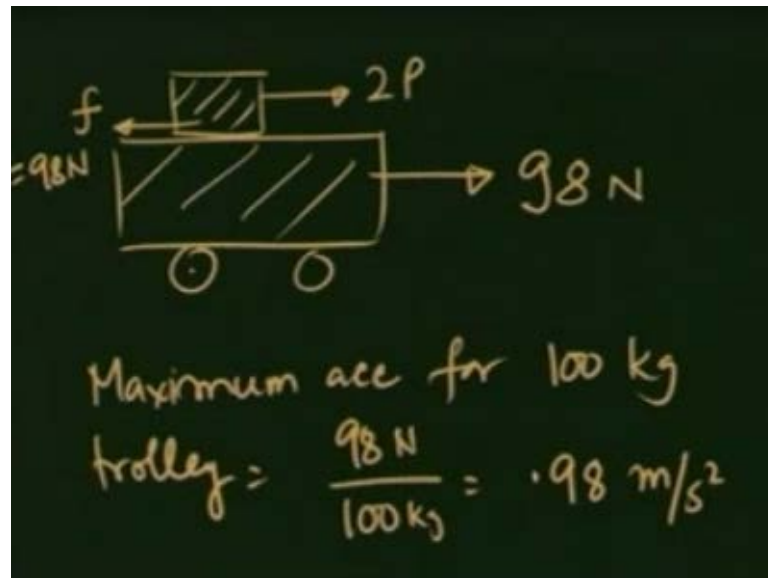 2P
f
=98N
98 N
Maximum acc for 100 kg
trolley = 98 N / 100 kg = .98 m/s²